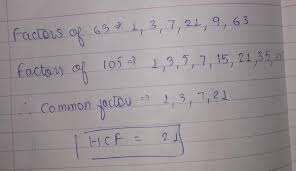 Factors of 63 ⇒ 1, 3, 7, 21, 9, 63
Factors of 105 ⇒ 1, 3, 5, 7, 15, 21, 35,
∴ Common factor ⇒ 1, 3, 7, 21
HCF = 21